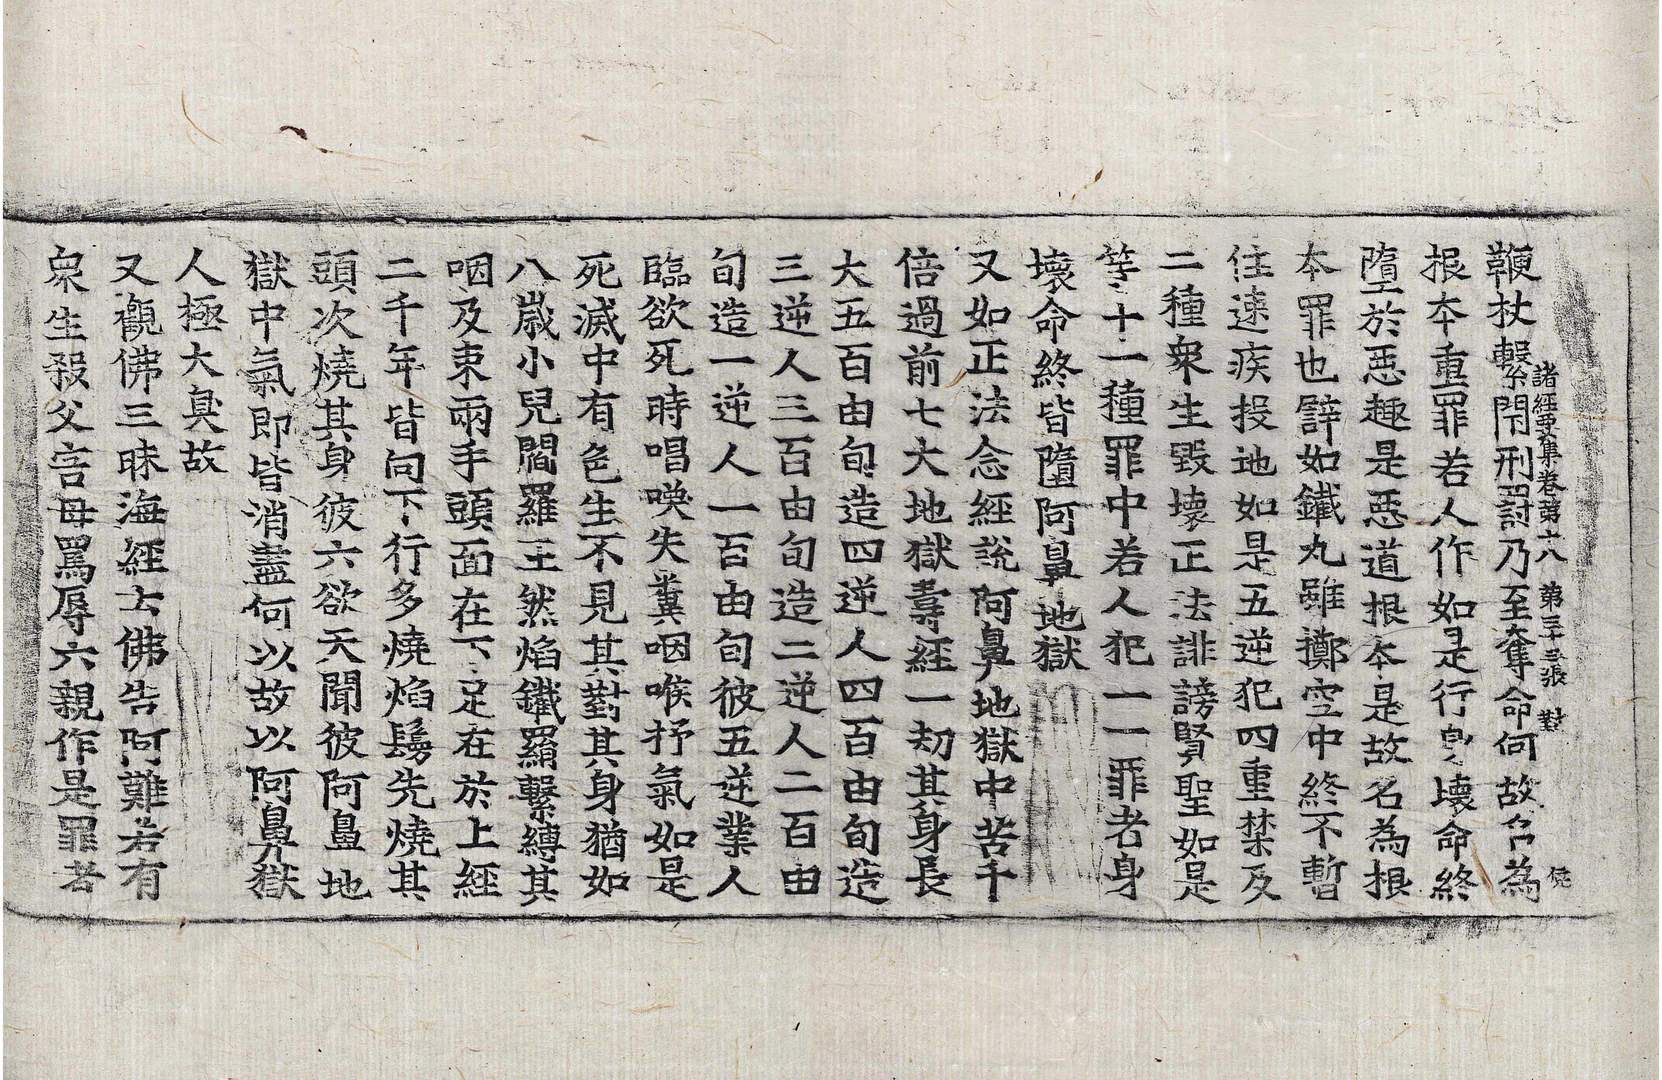 諸經要集卷第十八 第三十三張 對
鞭杖繫閇刑罰乃至奪命何故名為
根本重罪若人作如是行身壞命終
墮於惡趣是惡道根本是故名為根
本罪也譬如鐵丸雖擲空中終不暫
住速疾投地如是五逆犯四重禁及
二種衆生毀壞正法誹謗賢聖如是
等十一種罪中若人犯一一罪者身
壞命終皆墮阿鼻地獄
又如正法念經說阿鼻地獄中苦千
倍過前七大地獄壽經一劫其身長
大五百由旬造四逆人四百由旬造
三逆人三百由旬造二逆人二百由
旬造一逆人一百由旬彼五逆業人
臨欲死時唱喚失糞咽喉抒氣如是
死滅中有色生不見其對其身猶如
八歲小兒閻羅王然焰鐵羂繫縛其
咽及束兩手頭面在下足在於上經
二千年皆向下行多燒焰鬘先燒其
頭次燒其身彼六欲天聞彼阿鼻地
獄中氣即皆消盡何以故以阿鼻獄
人極大臭故
又觀佛三昧海經云佛告阿難若有
衆生殺父害母罵辱六親作是罪者